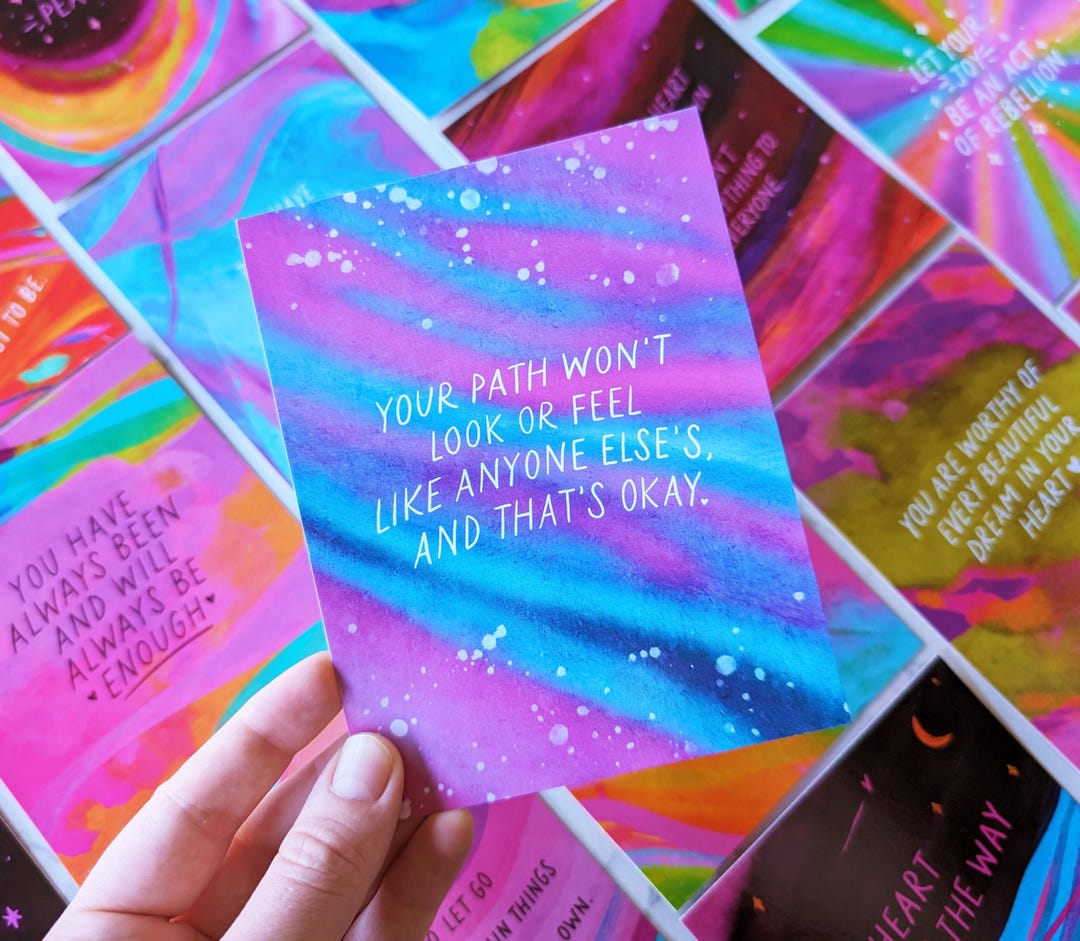 YOUR PATH WON'T
LOOK OR FEEL
LIKE ANYONE ELSE'S,
AND THAT'S OKAY.
LET YOUR
JOY
BE AN ACT
OF REBELLION
HEART
THING TO
EVERYONE
TO BE.
YOU HAVE
ALWAYS BEEN
AND WILL
ALWAYS BE
ENOUGH
YOU ARE WORTHY OF
EVERY BEAUTIFUL
DREAM IN YOUR
HEART
LET GO
THINGS
OWN.
HEART
THE WAY